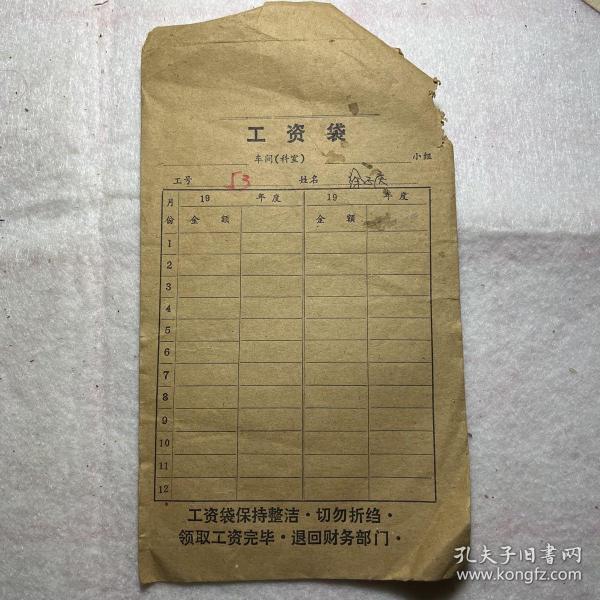 工资袋
车间(科室) 小组
工号 53 姓名 徐子庆
月份 19 年度 19 年度
金额 金额
1
2
3
4
5
6
7
8
9
10
11
12
工资袋保持整洁·切勿折绉·
领取工资完毕·退回财务部门·
孔夫子旧书网
www.kongfz.com